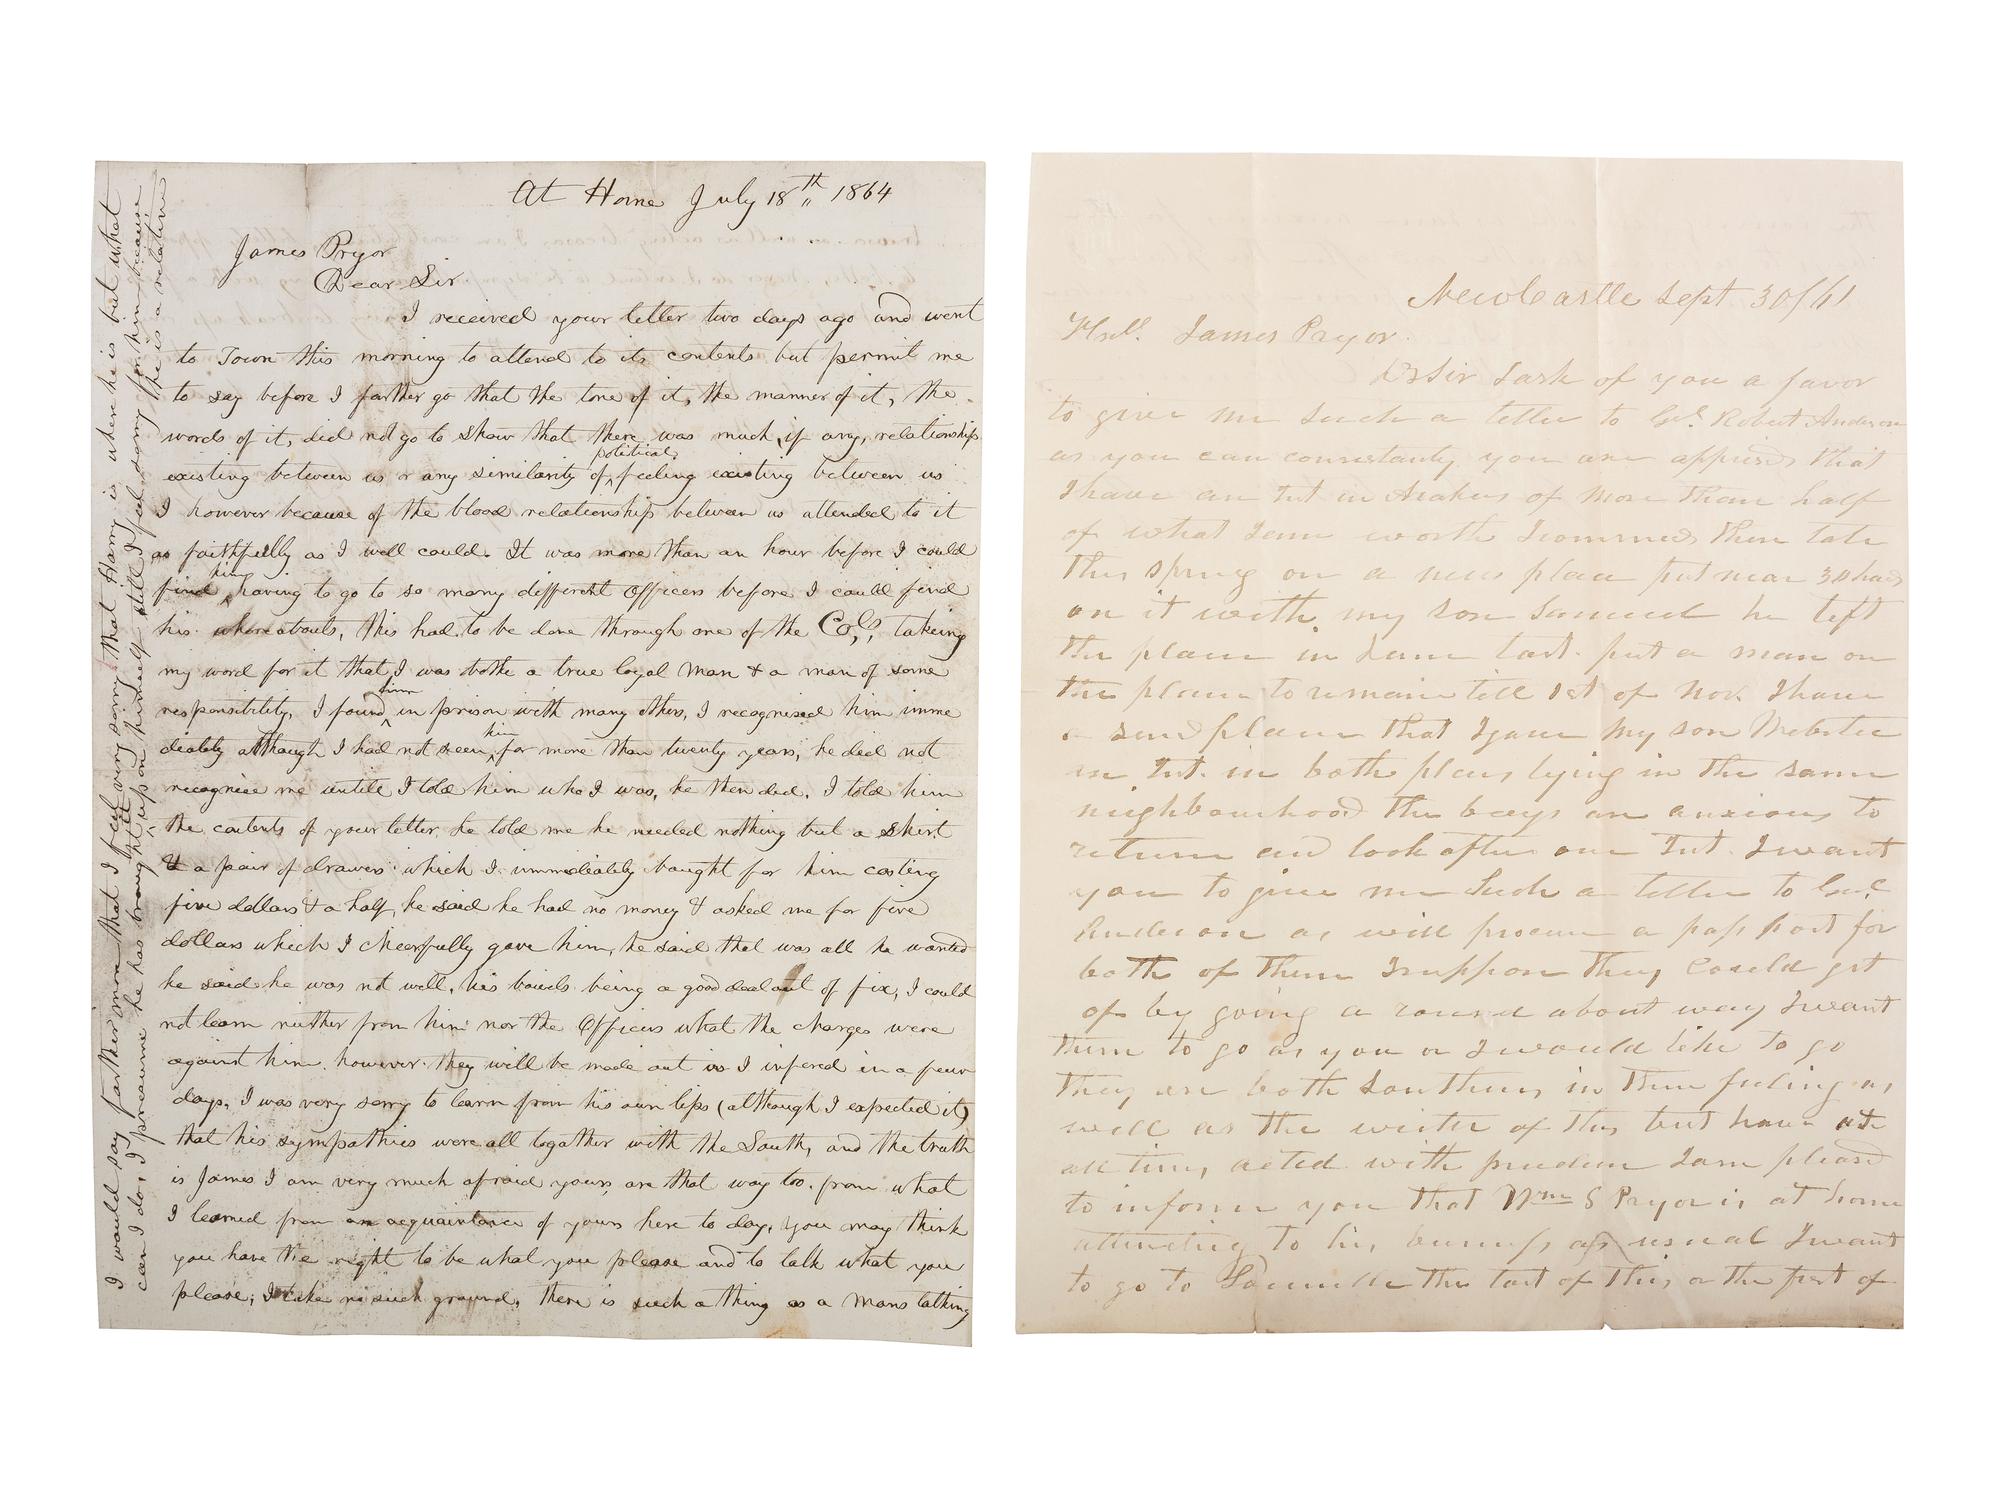 At Home July 18th 1864
James Pryor
Dear Sir
I received your letter two days ago and went
to Town this morning to attend to its contents but permit me
to say before I farther go that the tone of it, the manner of it, the
words of it, did not go to show that there was much, if any, relationship
political
existing between us or any similarity of feeling existing between us
I however because of the blood relationship between us attended to it
as faithfully as I well could. It was more than an hour before I could
him
find having to go to so many different Officers before I could find
his whereabouts, this had to be done through one of the Cols, takeing
my word for it that I was bothe a true loyal man & a man of some
him
responsibility, I found in prison with many others, I recognised him imme
him
diately although I had not seen for more than twenty years, he did not
recognise me untile I told him who I was, he then did. I told him
the contents of your letter, he told me he needed nothing but a shirt
& a pair of drawers which I immediately bought for him costing
five dollars & a half, he said he had no money & asked me for five
dollars which I cheerfully gave him, he said that was all he wanted
he said he was not well, his bowels being a good deal out of fix, I could
not learn neither from him nor the Officers what the charges were
against him. however they will be made out as I infered in a feuw
days, I was very sorry to learn from his own lips (although I expected it)
that his sympathies were all together with the South, and the truth
is James I am very much afraid yours are that way too. from what
I learned from an acquaintance of yours here to day, you may think
you have the right to be what you please and to talk what you
please; I take no such ground, there is such a thing as a mans talking
I would say farther more that I feel very sorry that Harry is where he is but what
can I do, I presume he has brought it upon himself still I feel sorry for him because
he is a relative
NewCastle Sept 30/61
James Pryor.
Dr Sir I ask of you a favor
to give me such a letter to Gel. Robert Anderson
as you can consistantly you are apprised that
I have an Int in Arakns of more than half
of what I am worth I commenced there late
this spring on a new place put near 30 hands
on it with my son Samuel he left
the place in June last. put a man on
the place to remain till 1st of Nov. I have
place that I gave my son Webster
an Int. in both places lying in the same
neighbourhood the boys are anxious to
return and look after our Int. I want
you to give me such a letter to Genl
Anderson as will procure a pass port for
both of them I suppose they could get
of by going a round about way I want
them to go as you or I would like to go
they are both Southern in there feeling as
well as the writer of this but have at
all times acted with prudence I am pleased
to inform you that Wm S Pryor is at home
attending to his business as usual I want
to go to Louisville the last of this or the first of